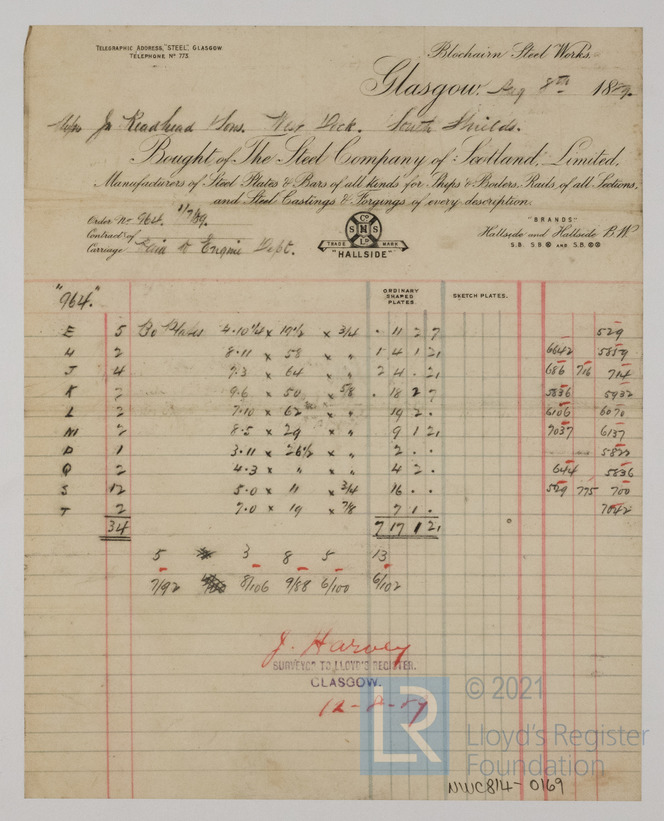 TELEGRAPHIC ADDRESS, "STEEL", GLASGOW
TELEPHONE No 773
Blochairn Steel Works.
Glasgow, Aug 8th 1889.
Messrs Jn Readhead & Sons. West Dock. South Shields.
Bought of The Steel Company of Scotland, Limited,
Manufacturers of Steel Plates & Bars of all kinds for Ships & Boilers, Rails of all Sections,
and Steel Castings & Forgings of every description.
Order No 964. 1/7/89.
Contract of
Carriage Engine Dept.
Co
S N S
Ld
TRADE MARK
"HALLSIDE"
"BRANDS"
Hallside and Hallside B.W.
S.B. S.B. AND S.B.
"964."
ORDINARY SHAPED PLATES.
SKETCH PLATES.
E 5 Bo Plates 4.10¼ x 17½ x 3/4 . 11 2 7 529
H 2 8.11 x 58 x " 1 4 1 21 6642 5859
J 4 7.3 x 64 x " 2 4 . 21 686 716 714
K 2 9.6 x 50 x 5/8 . 18 2 7 5836 5932
L 2 7.10 x 62 x " 19 2 . 6106 6070
M 2 8.5 x 29 x " 9 1 21 7037 6137
P 1 3.11 x 26½ x " 2 . . 5822
Q 2 4.3 x " x " 4 2 . 644 5836
S 12 5.0 x 11 x 3/4 16 . . 529 775 700
T 2 7.0 x 19 x 7/8 7 1 . 7042
34 7 17 1 21
5 3 8 5 13
7/92 8/106 9/88 6/100 6/102
J. Harvey
SURVEYOR TO LLOYD'S REGISTER.
GLASGOW.
12-8-89
LR © 2021
Lloyd's Register
Foundation
NWC814-0169